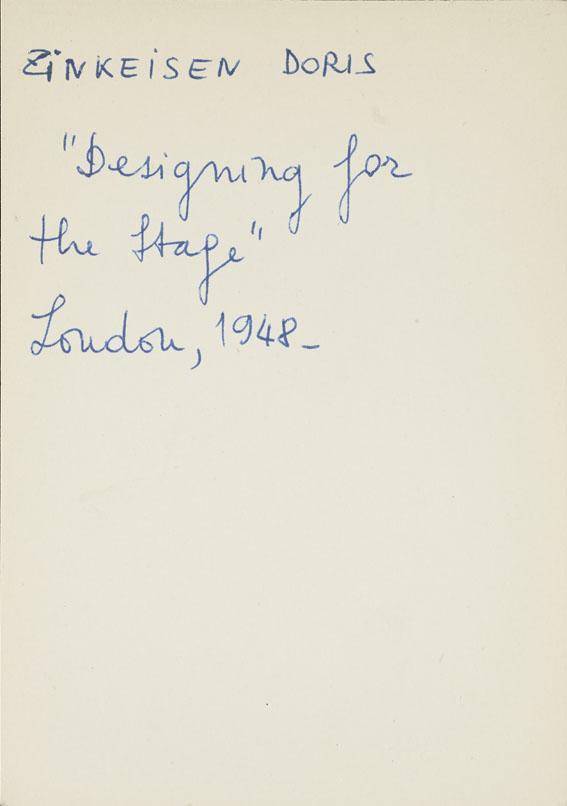 ZINKEISEN DORIS
"Designing for
the Stage"
London, 1948_